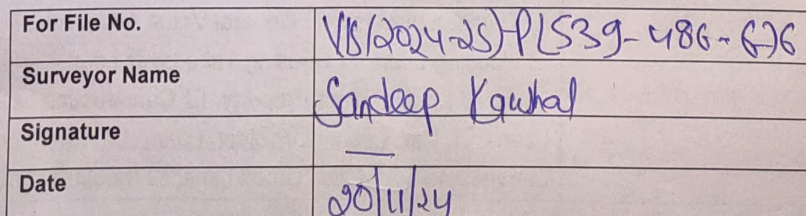 For File No. VIS(2024-25)-PL539-486-676
Surveyor Name Sandeep Kaushal
Signature
Date 20/11/24